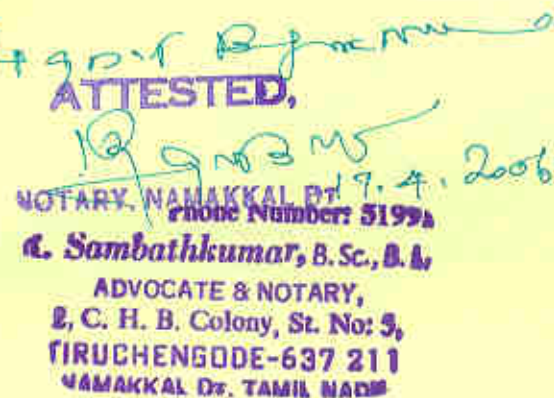 ATTESTED,
17.4.2006
NOTARY, NAMAKKAL DT.
Phone Number: 51991
Sambathkumar, B.Sc., B.L,
ADVOCATE & NOTARY,
2, C. H. B. Colony, St. No: 5,
TIRUCHENGODE-637 211
NAMAKKAL DT. TAMIL NADU